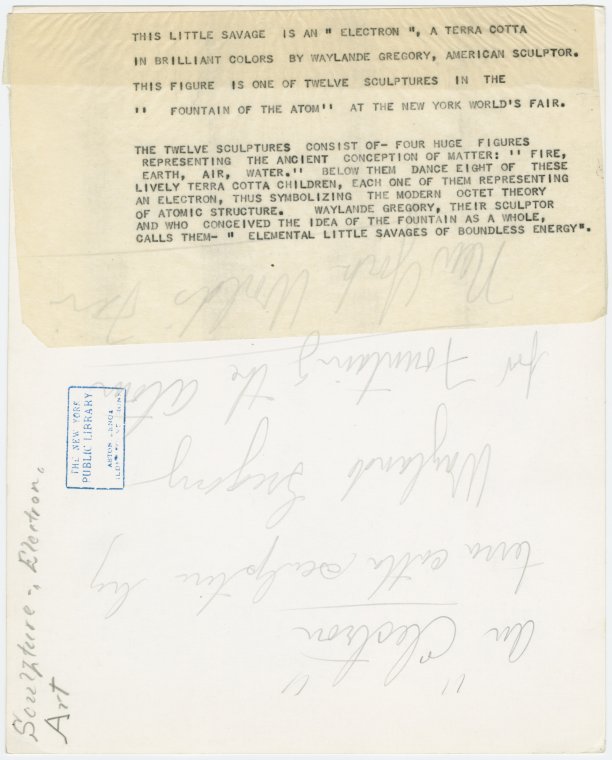 THIS LITTLE SAVAGE IS AN " ELECTRON ", A TERRA COTTA
IN BRILLIANT COLORS BY WAYLANDE GREGORY, AMERICAN SCULPTOR.
THIS FIGURE IS ONE OF TWELVE SCULPTURES IN THE
" FOUNTAIN OF THE ATOM" AT THE NEW YORK WORLD'S FAIR.
THE TWELVE SCULPTURES CONSIST OF- FOUR HUGE FIGURES
REPRESENTING THE ANCIENT CONCEPTION OF MATTER: " FIRE,
EARTH, AIR, WATER." BELOW THEM DANCE EIGHT OF THESE
LIVELY TERRA COTTA CHILDREN, EACH ONE OF THEM REPRESENTING
AN ELECTRON, THUS SYMBOLIZING THE MODERN OCTET THEORY
OF ATOMIC STRUCTURE. WAYLANDE GREGORY, THEIR SCULPTOR
AND WHO CONCEIVED THE IDEA OF THE FOUNTAIN AS A WHOLE,
CALLS THEM- " ELEMENTAL LITTLE SAVAGES OF BOUNDLESS ENERGY".
"An Electron"
terra cotta sculpture by
Wayland Gregory
for Fountain of the atom
New York World's Fair
THE NEW YORK
PUBLIC LIBRARY
ASTOR LENOX
Sculpture-, Electron.
Art